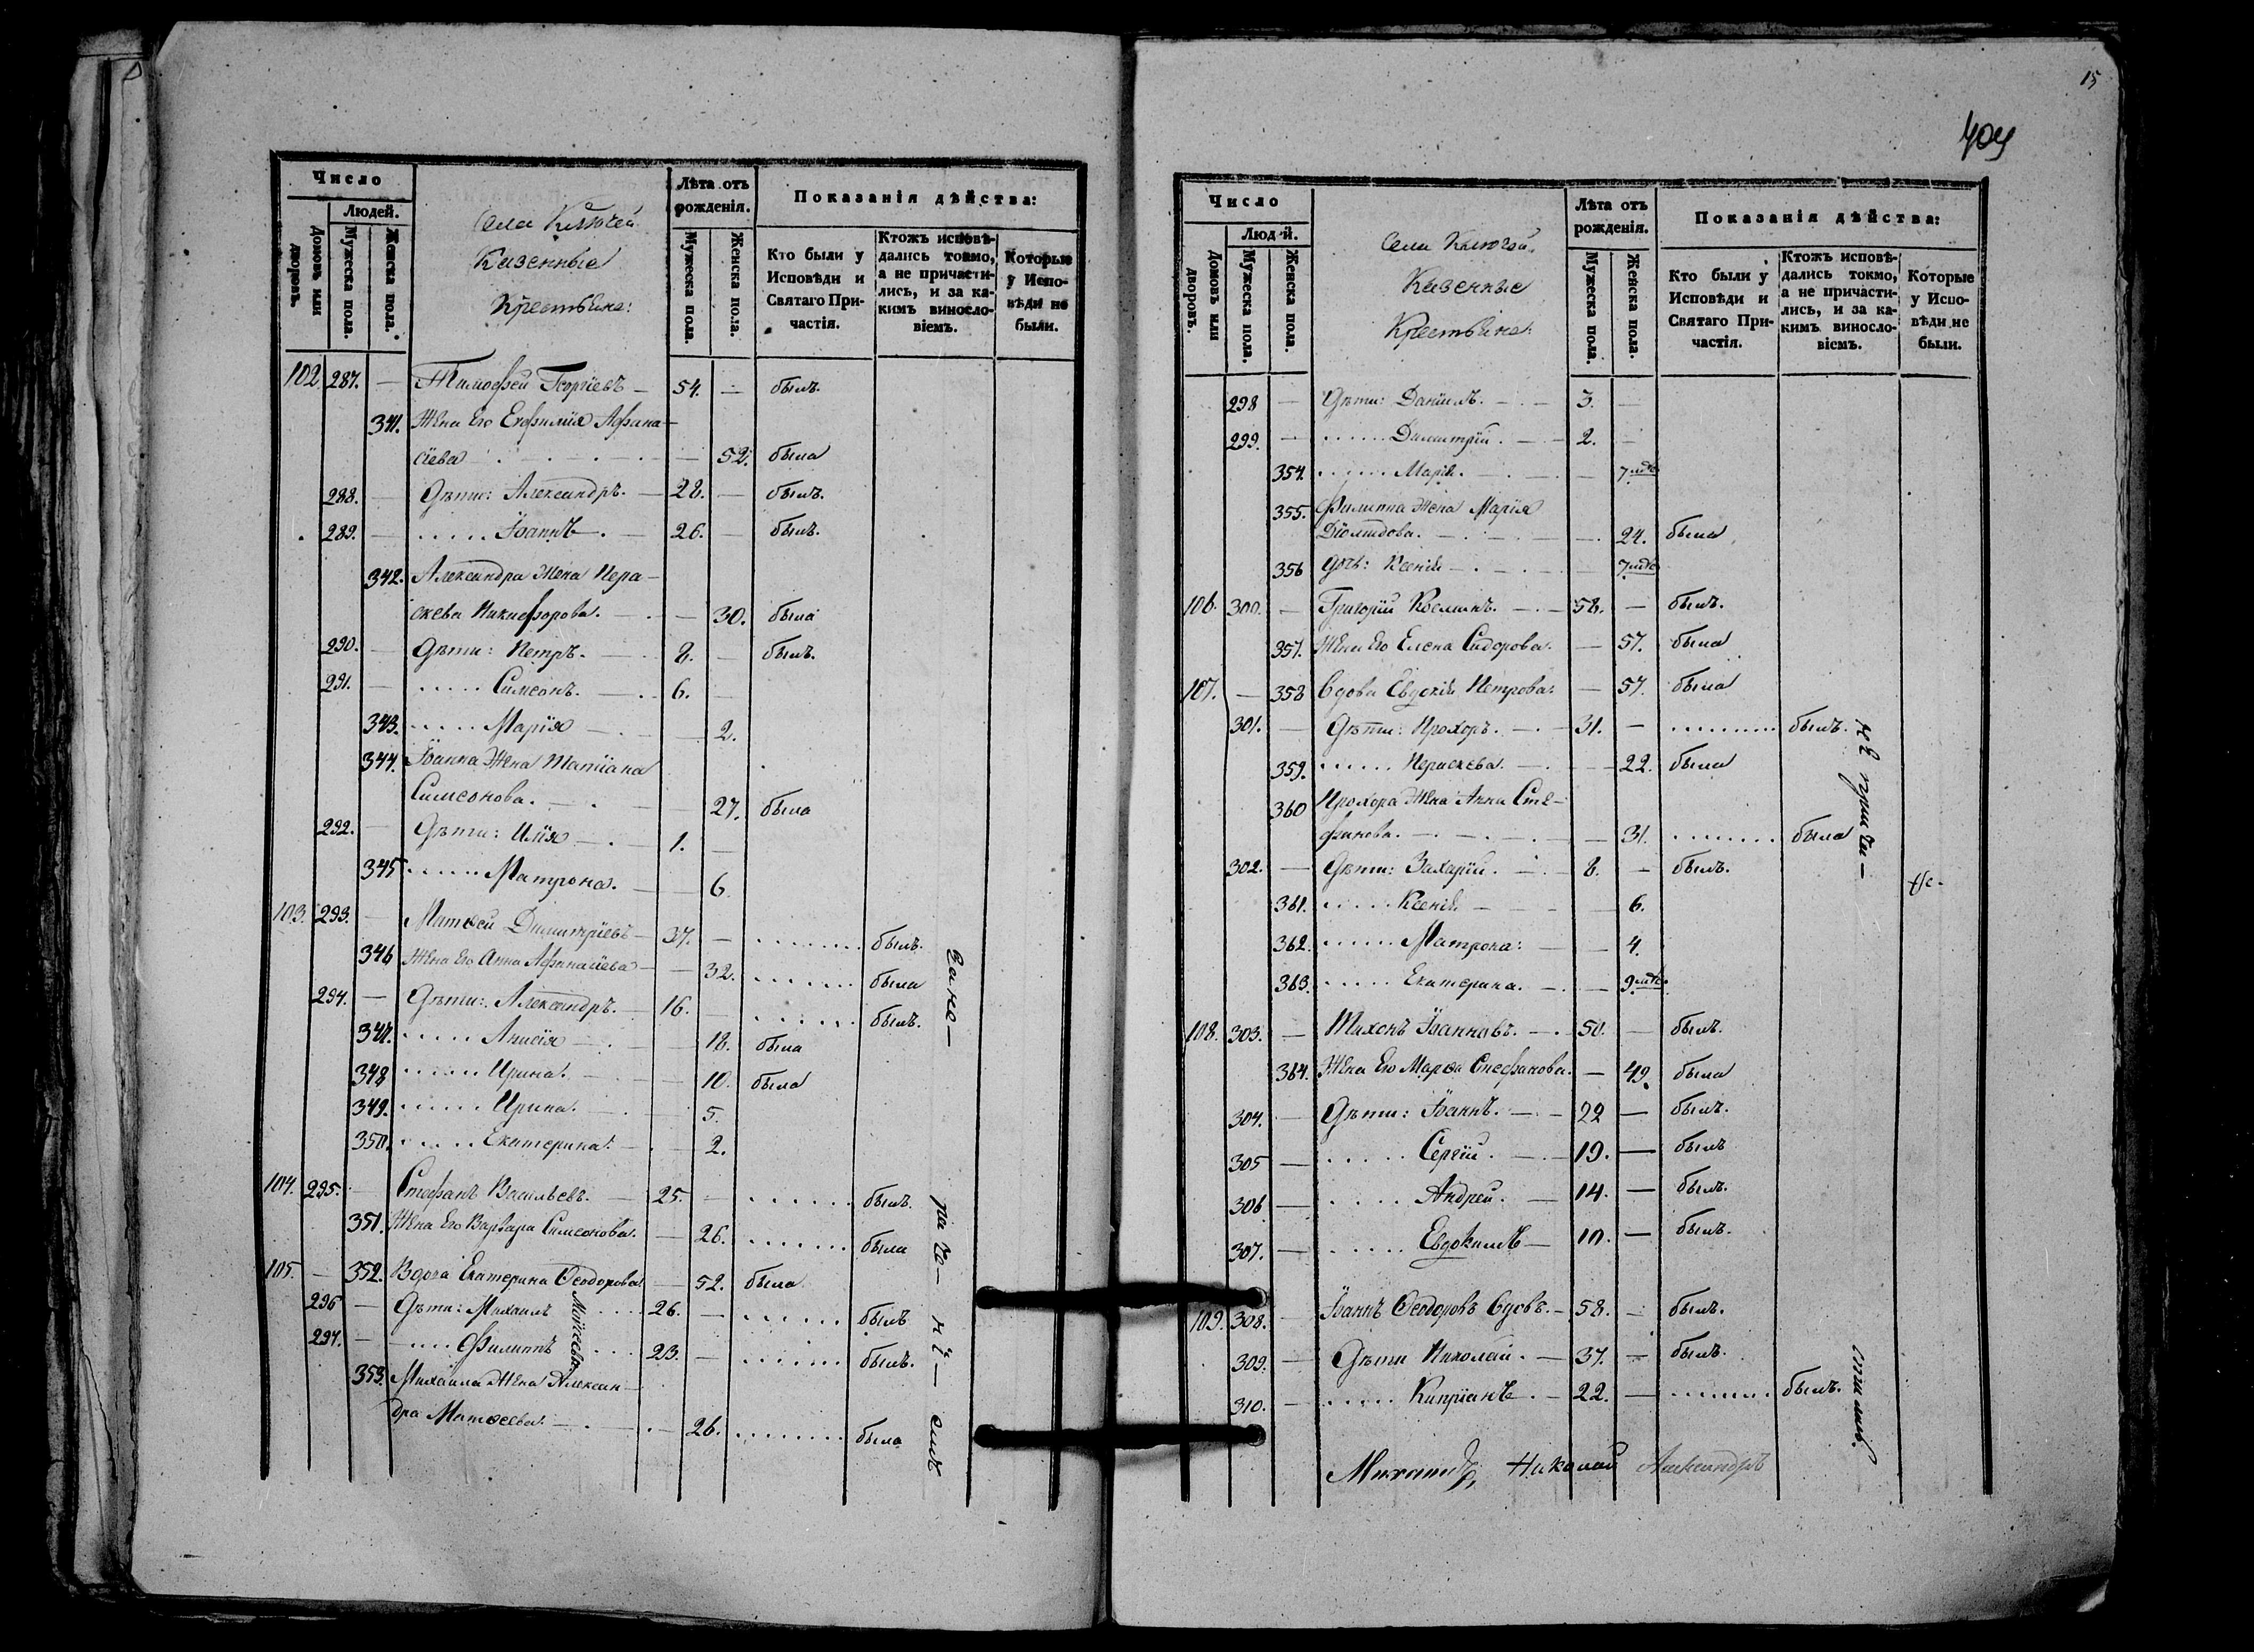 Число
Людей.
Домовъ или дворовъ.
Мужеска пола.
Женска пола.
Села Ключей
Казенные
Крестьяне:
Лѣта отъ рожденія.
Мужеска пола.
Женска пола.
Показанія дѣйства:
Кто были у Исповѣди и Святаго При-частія.
Ктожъ исповѣ-дались токмо, а не причасти-лись, и за ка-кимъ винословіемъ.
Которые у Испо-вѣди не были.
102. 287. — Тимофей Георгіевъ — 54. — былъ.
341. Жена Его Евфимія Афана-
сіева — 52. была
288. — Дѣти: Александръ. — 28. — былъ.
289. — ..... Іоаннъ. — 26. — былъ.
342. Александра Жена Пера-
скева Никифорова. — 30. была
290. — Дѣти: Петръ. — 8. — былъ.
291. — ..... Симеонъ. — 6. —
343. ..... Марія — 2.
344. Іоанна Жена Татіана
Симеонова. — 27. была
292. — Дѣти: Илія — 1. —
345 ..... Матрона. — 6.
103. 293. — Матѳей Димитріевъ — 37. — ....... былъ.
346 Жена Его Анна Афанасіева — 32. ....... была
294. — Дѣти: Александръ. — 16. — ...... былъ.
347. ..... Анисія — 18. была
348 ..... Ирина. — 10. была
349. ..... Ирина. — 5.
350. ..... Екатерина. — 2.
104. 295. — Стефанъ Васильевъ. — 25. — ...... былъ.
351. Жена Его Варвара Симеонова. — 26. ....... была
105. — 352. Вдова Екатерина Ѳеодорова — 52. была
296 — Дѣти: Михаилъ .... 26. — ...... былъ
297. — .... Филиппъ ... 23. — ...... былъ.
Моисеевы
353. Михаила Жена Алексан-
дра Матѳеева. — 26. ........ была
15
409
Число
Людей.
Домовъ или дворовъ.
Мужеска пола.
Женска пола.
Села Ключей
Казенные
Крестьяне:
Лѣта отъ рожденія.
Мужеска пола.
Женска пола.
Показанія дѣйства:
Кто были у Исповѣди и Святаго При-частія.
Ктожъ исповѣ-дались токмо, а не причасти-лись, и за ка-кимъ винословіемъ.
Которые у Испо-вѣди не были.
298 — Дѣти: Даніилъ. — 3. —
299. — ...... Димитрій. — 2. —
354. ..... Марія. — 7
355. Филиппа Жена Марія
Діомидова. — 24. была
356 Дочь: Ксенія — 7
106. 300. — Григорій Космин. — 58. — былъ.
357. Жена Его Елена Сидорова. — 57. была
107. — 358 Вдова Евдокія Петрова. — 57. была
301. — Дѣти: Прохоръ. — 31. — ......... былъ.
359. ...... Пераскева. — 22. была
360 Прохора Жена Анна Сте-
фанова. — 31. ........ была
302. — Дѣти: Захарій. — 8. — былъ.
361. ..... Ксенія. — 6.
362. ...... Матрона: — 4.
363. ..... Екатерина. — 9
108. 303. — Тихонъ Іоанновъ. — 50. — былъ.
364. Жена Его Марѳа Стефанова. — 49. была
304. — Дѣти: Іоаннъ. — 22 — былъ.
305 — ..... Сергій. — 19. — былъ
306 — ..... Андрей. — 14. — былъ.
307. — ...... Евдокимъ — 10. — былъ.
109. 308. — Іоаннъ Ѳеодоровъ Вдовъ. — 58. — былъ.
309. — Дѣти Николай. — 37. — былъ.
310. — ..... Кипріанъ. — 22. — ......... былъ.
Николай Александръ